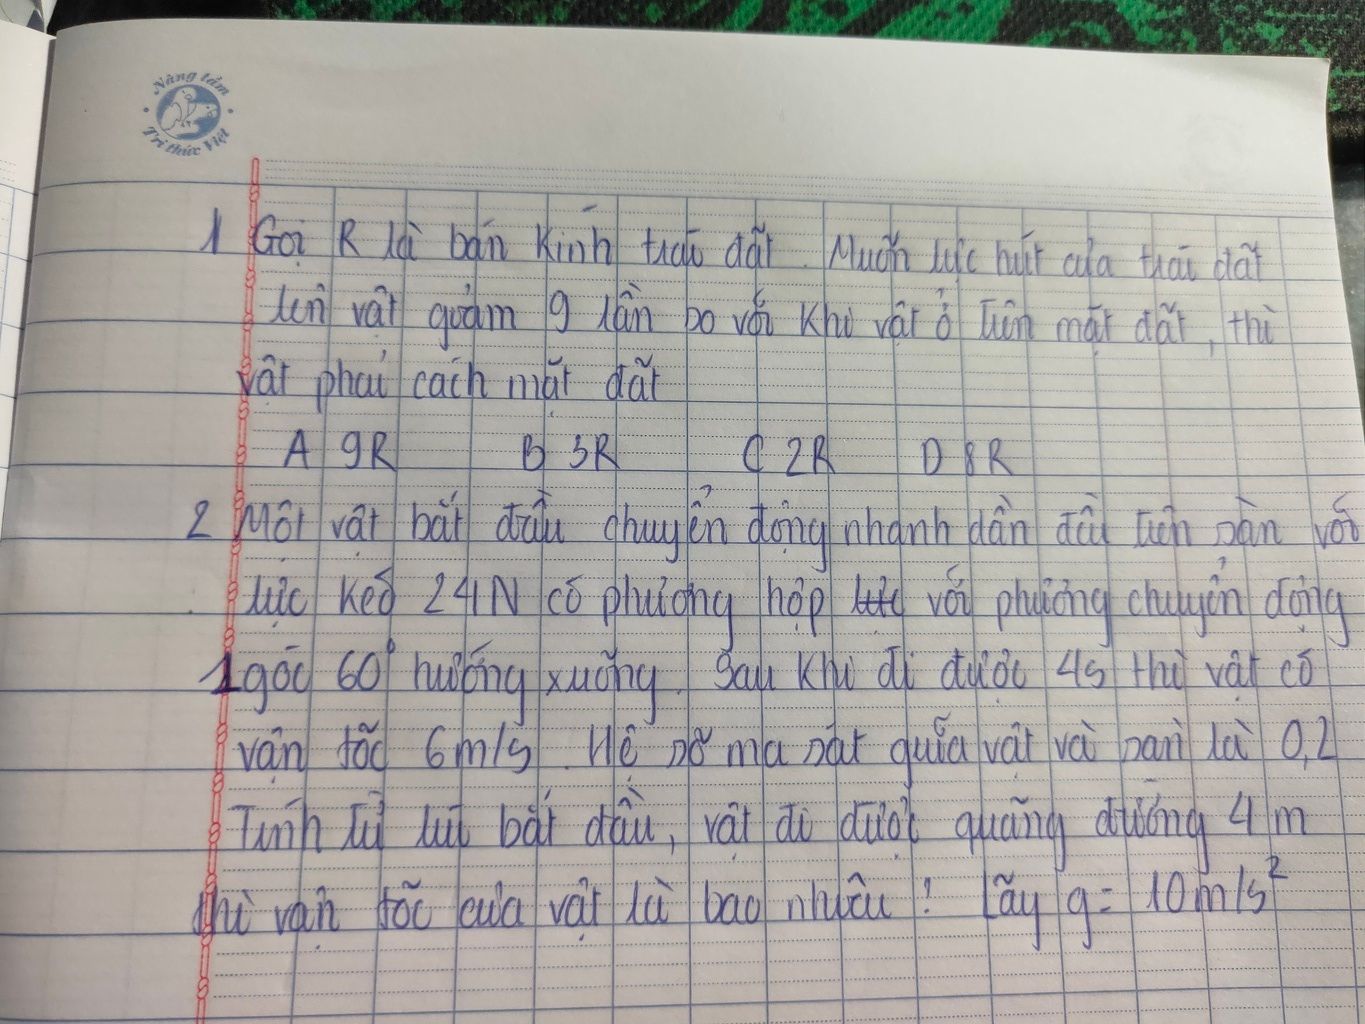 Nâng tầm
Tri thức Việt
1 Gọi R là bán kính trái đất. Muốn lực hút của trái đất
lên vật giảm 9 lần so với khi vật ở trên mặt đất, thì
vật phải cách mặt đất
A 9R B 3R C 2R D 8R
2 Một vật bắt đầu chuyển động nhanh dần đều trên sàn với
lực kéo 24N có phương hợp với phương chuyển động
1 góc 60° hướng xuống. Sau khi đi được 4s thì vật có
vận tốc 6m/s. Hệ số ma sát giữa vật và sàn là 0,2
Tính từ lúc bắt đầu, vật đi được quãng đường 4m
thì vận tốc của vật là bao nhiêu? Lấy g = 10m/s²